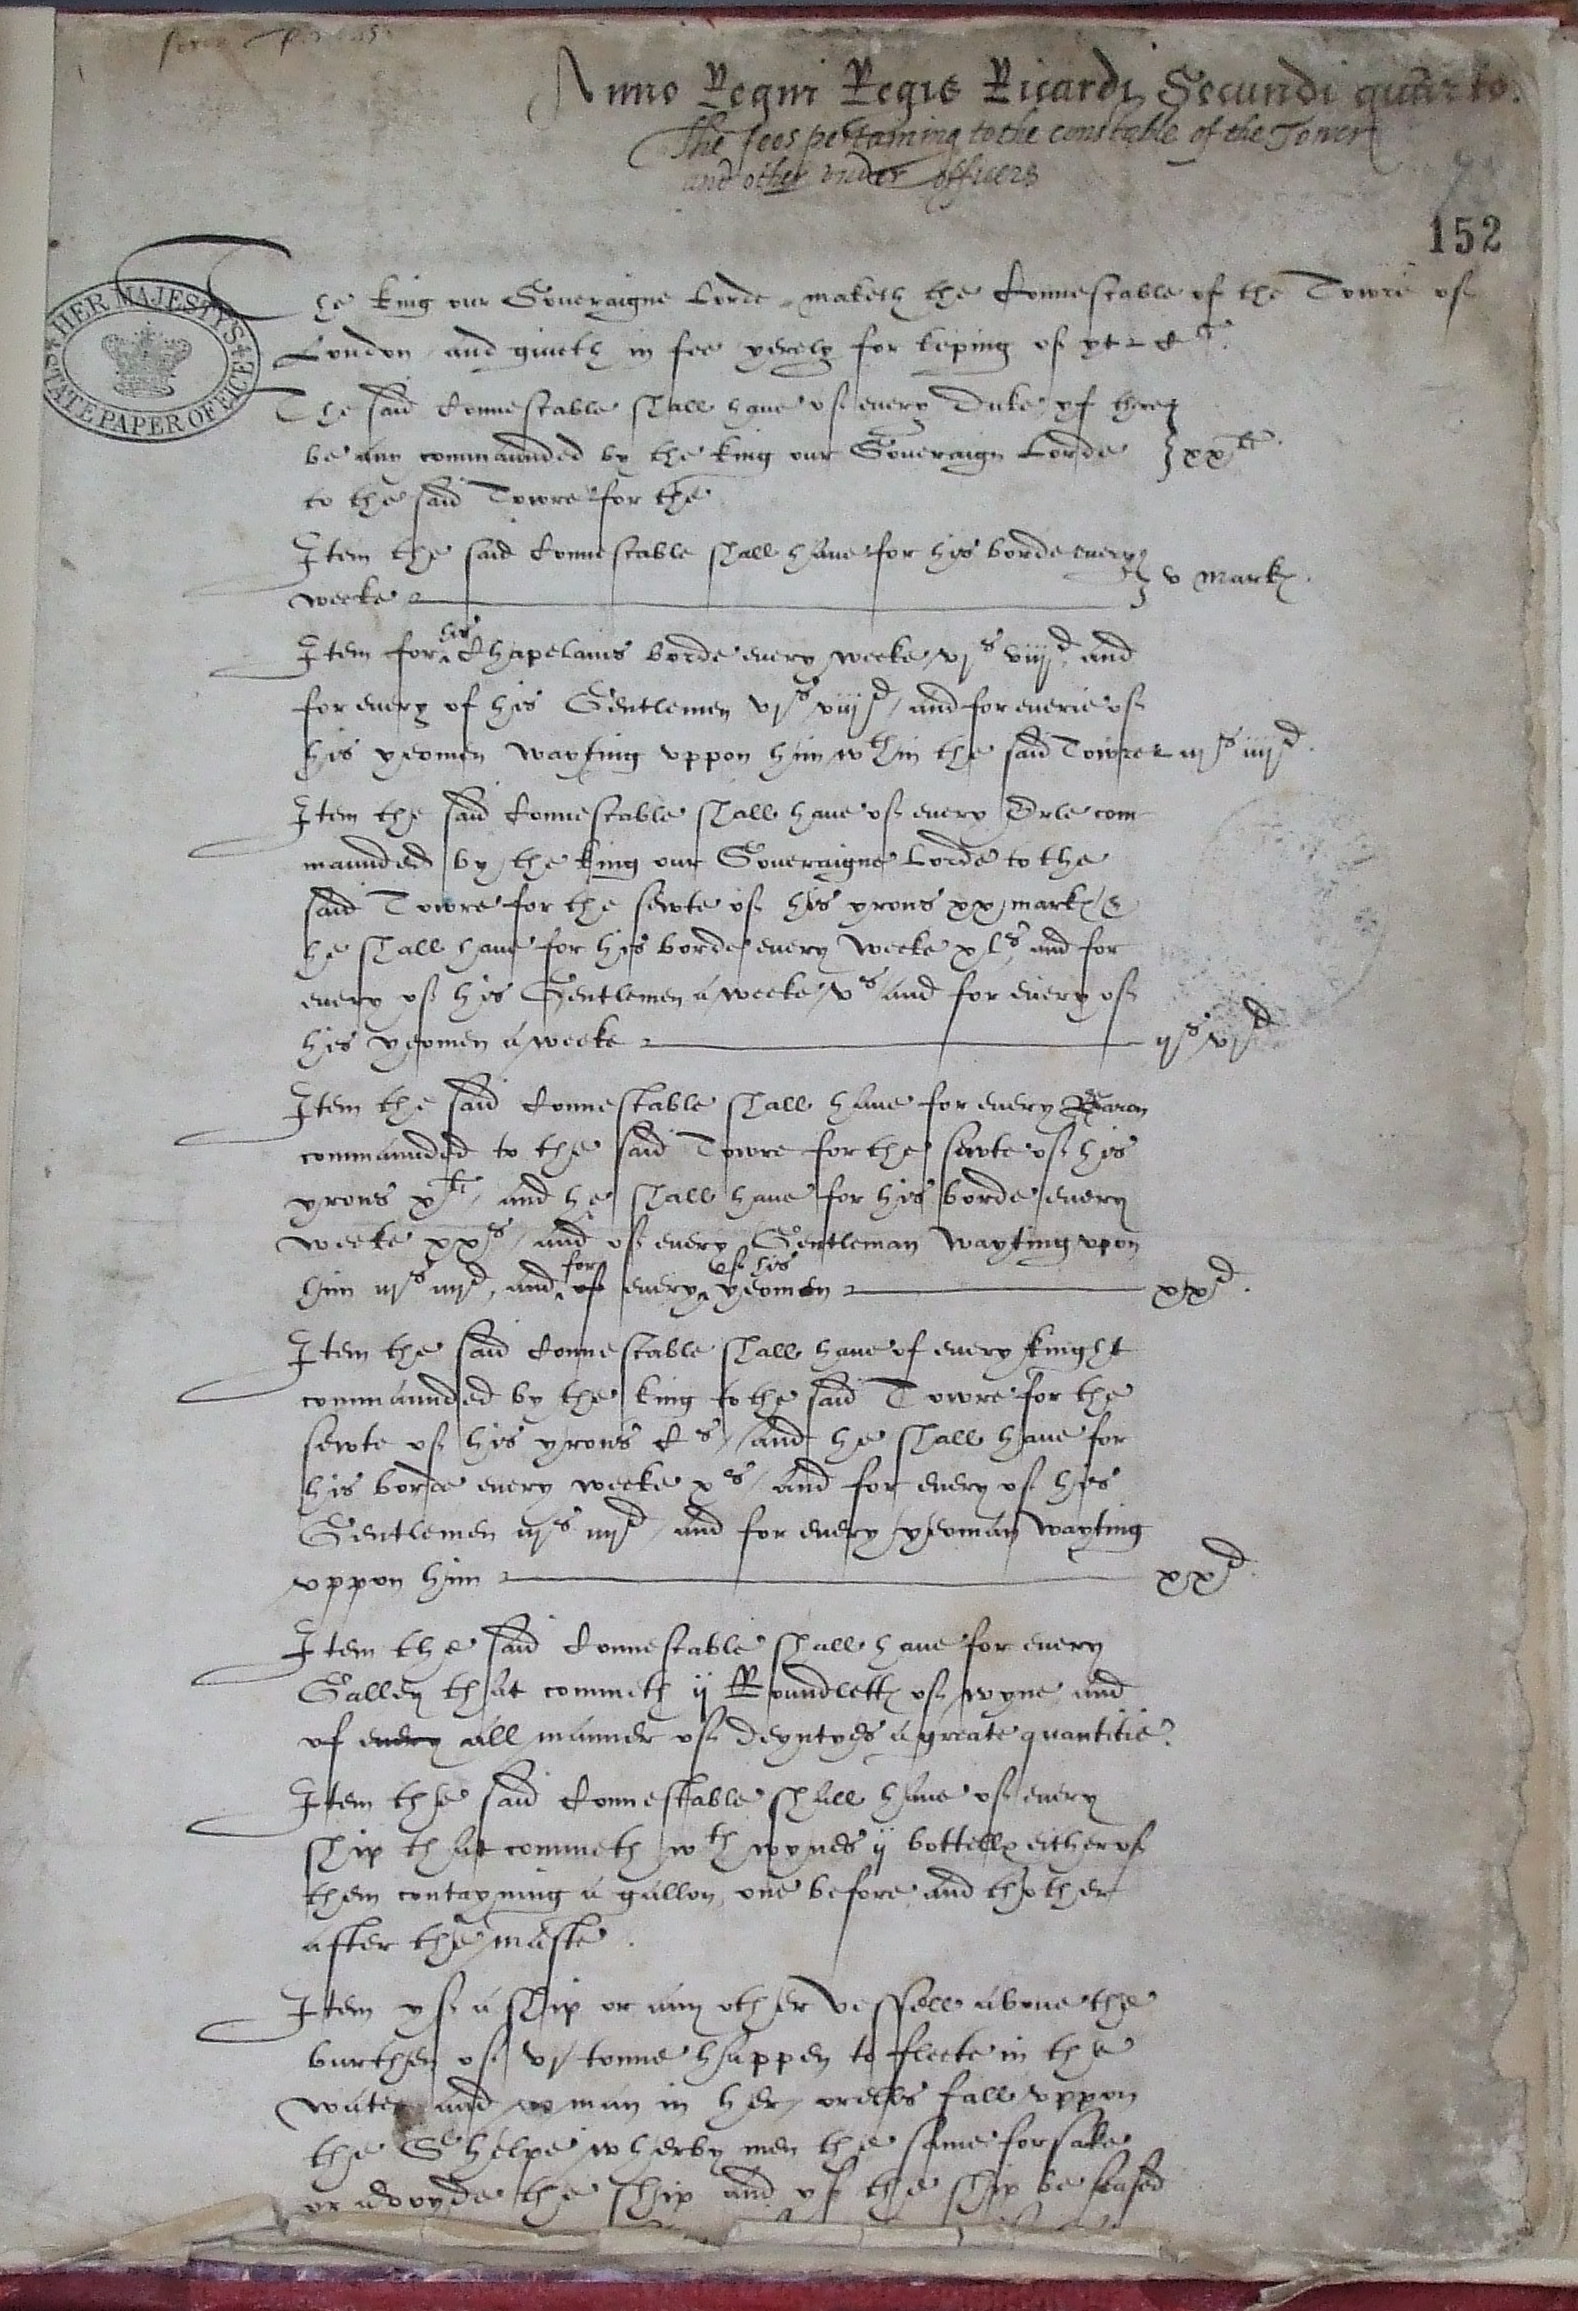 Anno Regni Regis Ricardi Secundi quarto.
The fees pertaining to the constable of the Tower
and other under officers
152
HER MAJESTY'S STATE PAPER OFFICE
The king our Soueraigne Lorde maketh the Connestable of the Towre of
London and giueth in fee yerely for keping of yt C li.
The said Connestable shall haue of euery Duke yf there
be any commaunded by the king our Soueraign Lorde xx li.
to the said Towre for the
Item the said Connestable shall haue for his borde euery
weeke v mark.
Item for his Chapelains borde euery weeke vjs viijd, and
for euery of his Gentlemen vjs viijd, and for euerie of
his yeomen wayting vppon him wthin the said Towre iijs iiijd.
Item the said Connestable shall haue of euery Erle com
maunded by the king our Soueraigne Lorde to the
said Towre for the sewte of his yrons xx mark, &
he shall haue for his borde euery weeke xls, and for
euery of his Gentlemen a weeke vs and for euery of
his yeomen a weeke ijs vjd
Item the said Connestable shall haue for euery Baron
commaunded to the said Towre for the sewte of his
yrons x li, and he shall haue for his borde euery
weeke xxs, and of euery Gentleman wayting vpon
him iijs iiijd, and for of euery of his yeomen xxd.
Item the said Connestable shall haue of euery knight
commaunded by the king to the said Towre for the
sewte of his yrons Cs, and he shall haue for
his borde euery weeke xs, and for euery of his
Gentlemen iijs iiijd, and for euery yeoman wayting
vppon him xxd.
Item the said Connestable shall haue for euery
Galley that commeth ij Roundlett of wyne, and
of euery all manner of deyntyes a greate quantitie.
Item the said Connestable shall haue of euery
ship that commeth wth wynes ij bottells either of
them contayning a gallon, one before and thother
after the maste.
Item yf a ship or any other vessell aboue the
burthen of vj tonne happen to fleete in the
water and no man in her, or ells fall vppon
the Shelpe wherby men the same forsake
or avoyde the ship and yf the ship be seased